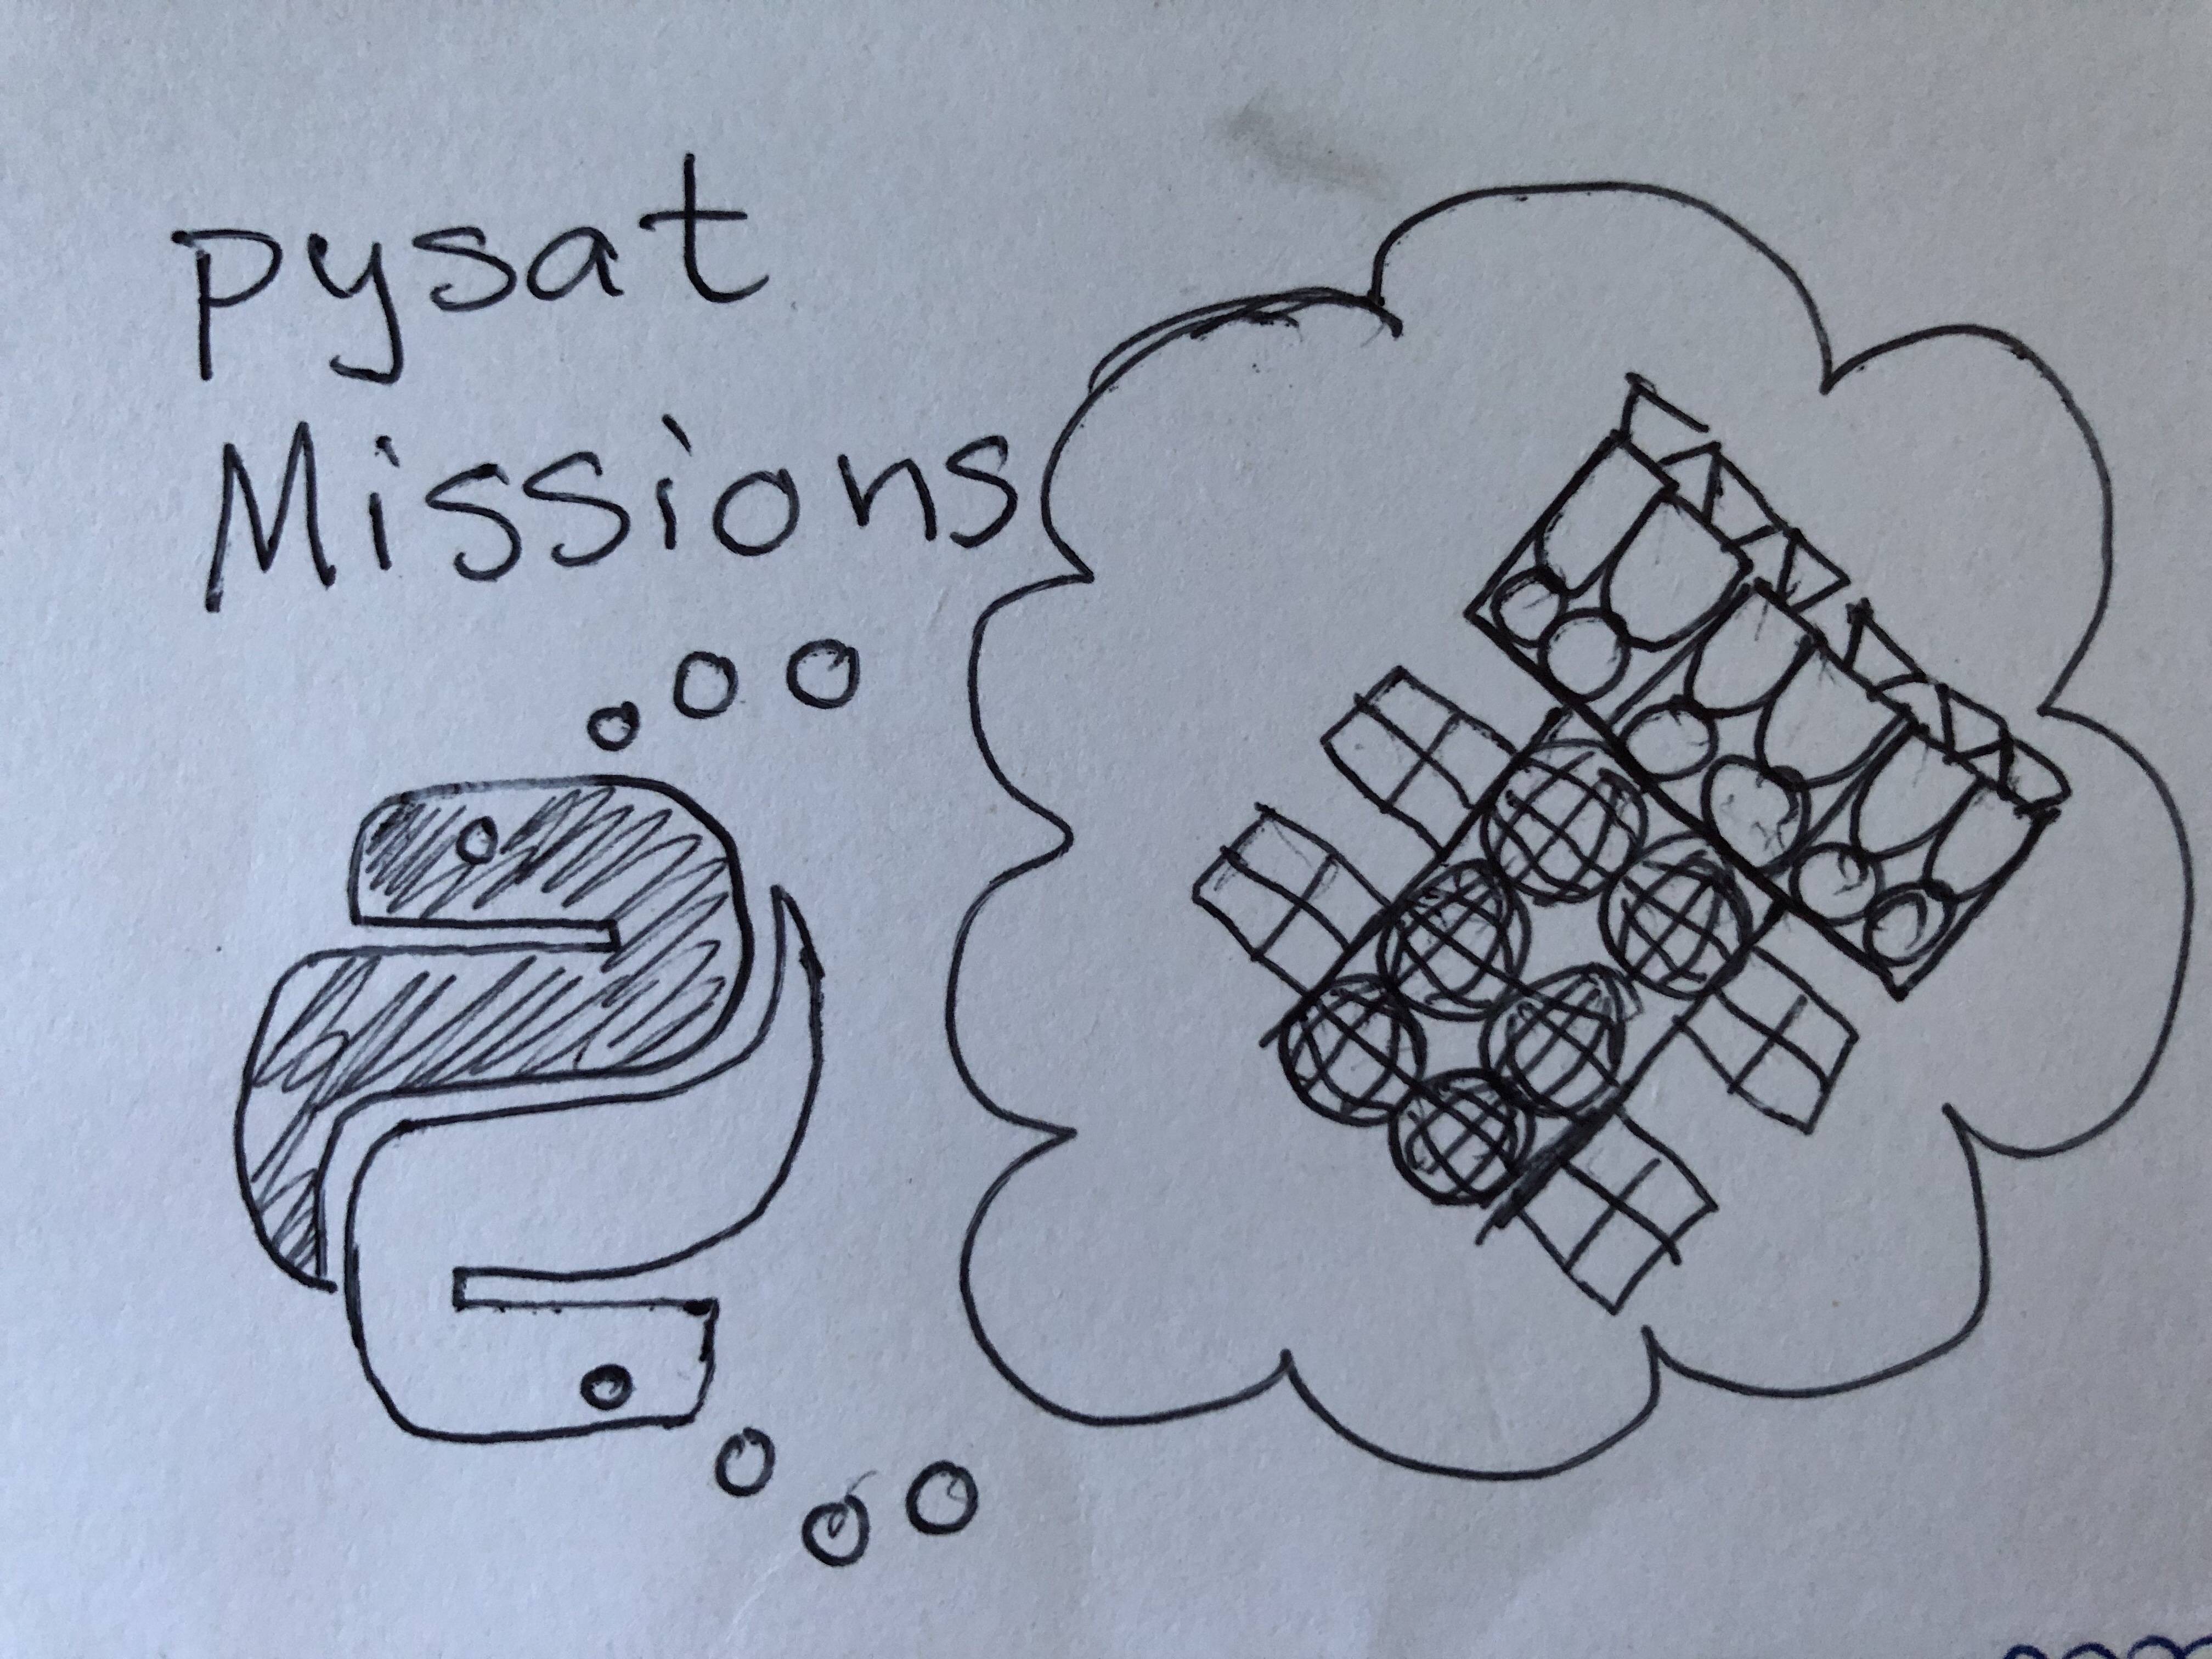 pysat
Missions